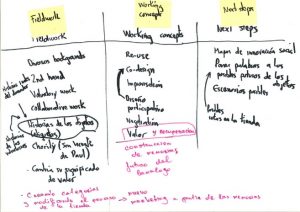 Fieldwork
Working concepts
Next steps
Fieldwork
Diversos backgrounds
2nd hand
Voluntary work
Collaborative work
Historias de los objetos
(categorías)
Charity (San Vicente de Paul)
Cambia su significado de valor
Working concepts
Re-use
Co-design
Improvisación
Diseño participativo
Negotiation
Valor y recuperación
construcción de memorias
futuro del
Next steps
Mapa de innovación social
Poner palabras a los
posibles futuros de los objetos
Escenarios posibles
Posibles
en la tienda
- Creando categorías
y modificando el proceso → nuevo
de la tienda
marketing a partir de las memorias